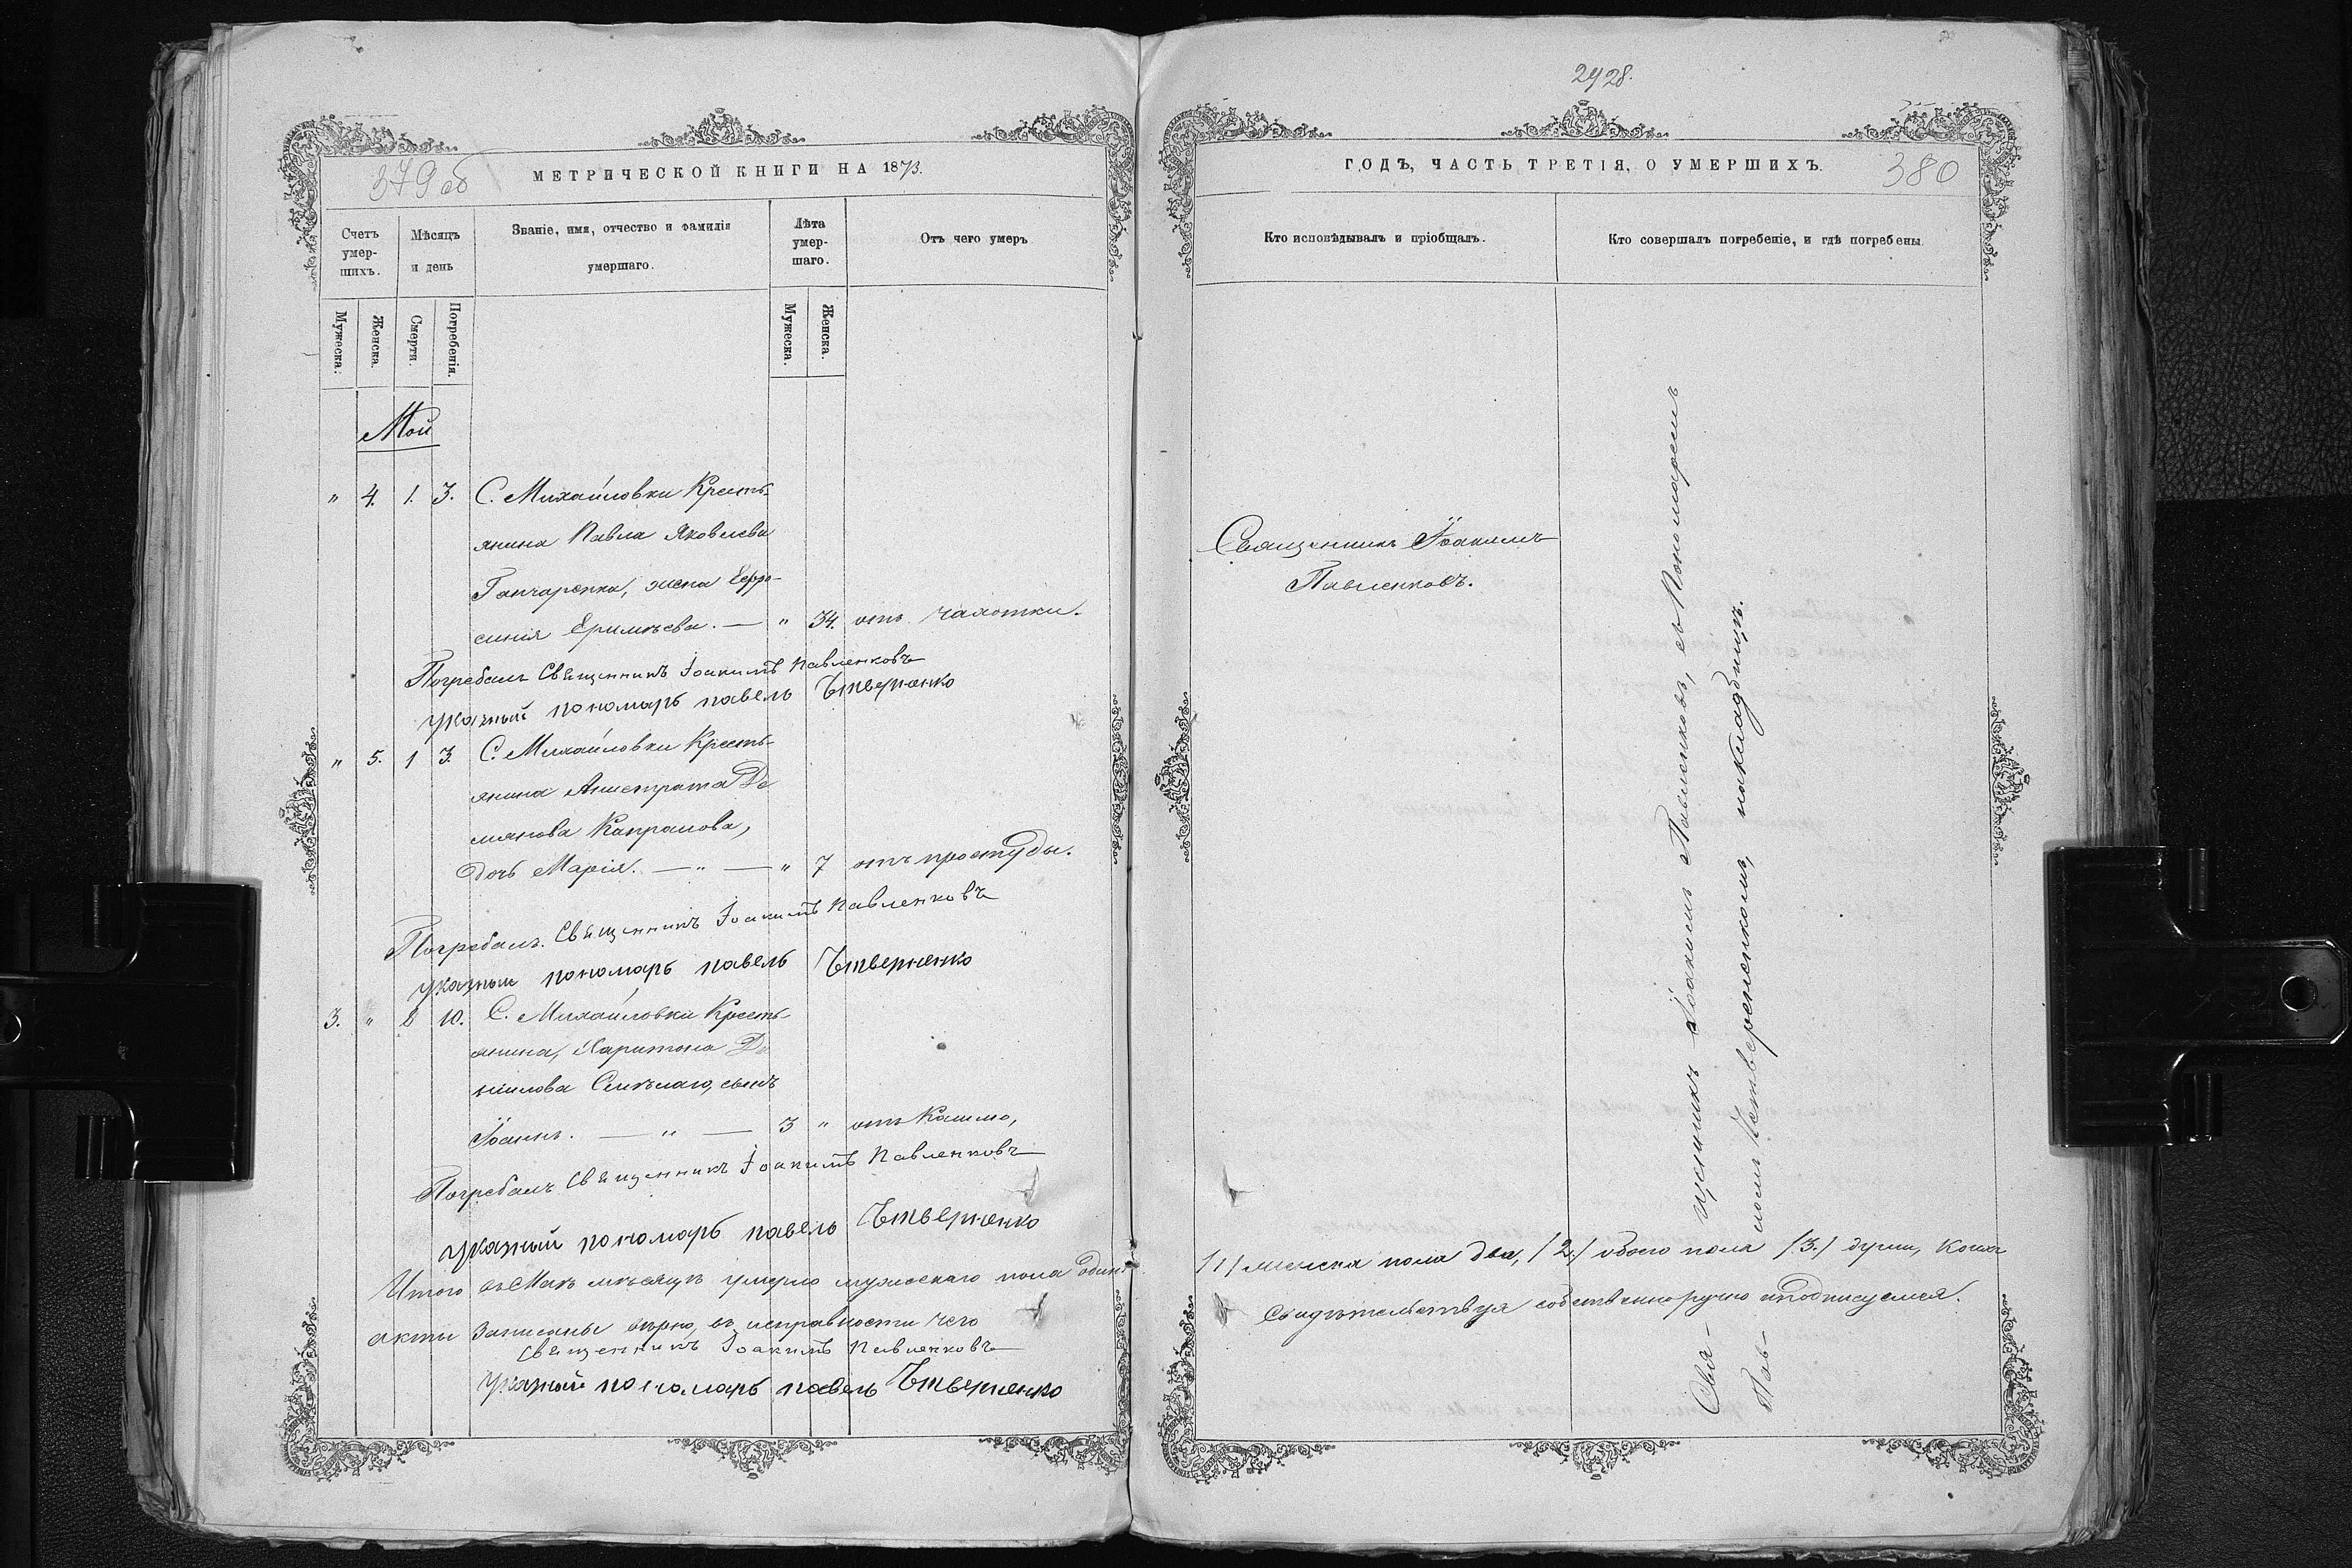 379 об
МЕТРИЧЕСКОЙ КНИГИ НА 1873.
Счетъ умер-шихъ.
Мѣсяцъ и день
Званіе, имя, отчество и фамилія умершаго.
Лѣта умер-шаго.
Отъ чего умеръ
Мужеска.
Женска.
Смерти.
Погребенія.
Мужеска.
Женска.
Май
" 4. 1. 3. С. Михайловки Кресть-
янина Павла Яковлева
Ганчаренка, жена Евфро-
синія . — " 34. отъ чахотки.
Погребалъ Священникъ Іоакимъ Павленковъ
Указный пономарь павелъ
" 5. 1 3. С. Михайловки Кресть-
янина Анистрата Де
мянова Капранова,
дочь Марія. — " — " 7 отъ простуды.
Погребалъ. Священникъ Іоакимъ Павленковъ
Указный пономарь павелъ
3. " 8 10. С. Михайловки Кресть-
янина, Харитона Да
ниилова , сынъ
Іоаннъ. — " — 3 " отъ Кашлю,
Погребалъ Священникъ Іоакимъ Павленковъ
Указный пономарь павелъ
Итого въ Маѣ мѣсяцѣ умерло мужескаго пола одинъ
акты Записаны вѣрно, въ исправности чего
Священникъ Іоакимъ Павленковъ
Указный пономарь павелъ
2928.
ГОДЪ, ЧАСТЬ ТРЕТІЯ, О УМЕРШИХЪ.
380
Кто исповѣдывалъ и пріобщалъ.
Кто совершалъ погребеніе, и гдѣ погребены.
Священникъ Іоакимъ
Павленковъ.
Свя-щенникъ Іоакимъ Павленковъ, съ Пономаремъ
Пав-ломъ Четверенкомъ, накладбищѣ.
/1/ женска пола два, /2./ обоего пола /3./ души, Коихъ
Свидѣтельствуя собственноручно иподписуемся.